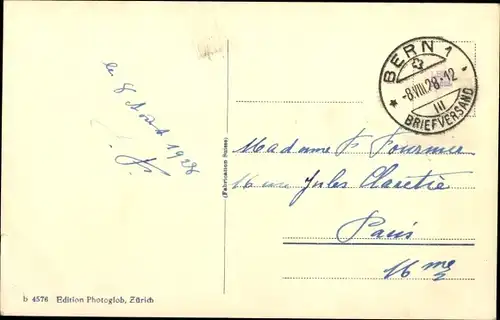 le 8 Août 1928
BERN 1
-8.VIII.28-12
III
BRIEFVERSAND
(Fabrication Suisse)
Madame F. Fournier
16 rue Jules Claretie
Paris
16 me
b 4576 Edition Photoglob, Zürich